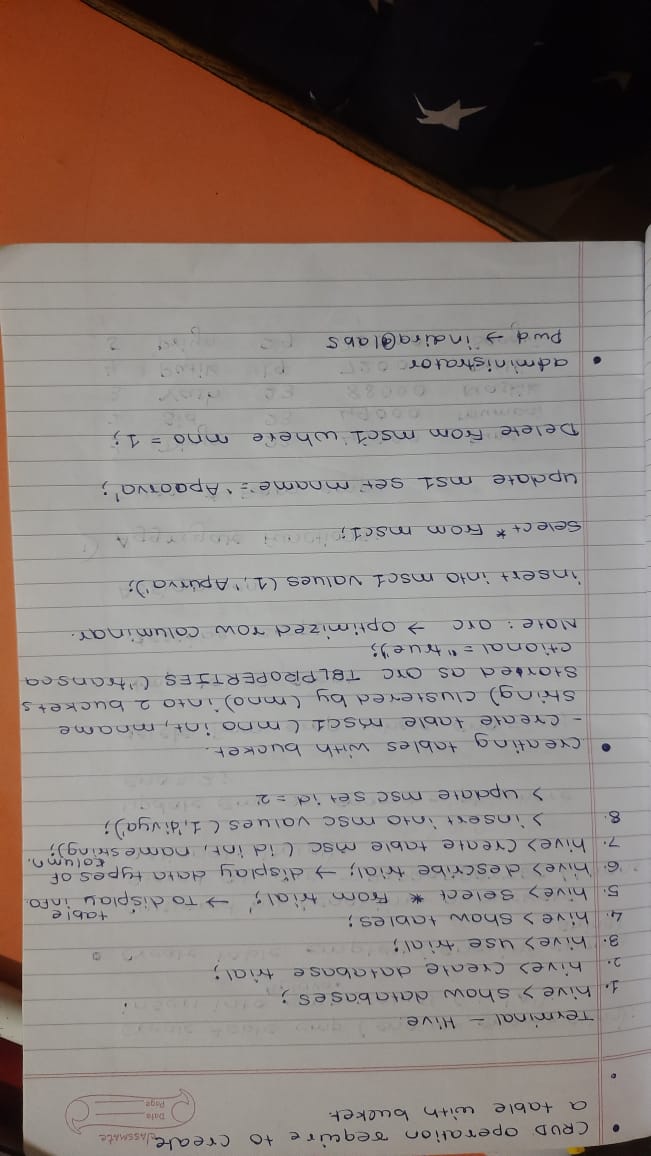 classmate
Date
Page
• CRUD operation require to create
a table with bucket
•
Terminal - Hive.
1. hive > show databases;
2. hive> create database trial;
3. hive> use trial;
4. hive > show tables;
5. hive> select * from trial; → To display table info.
6. hive> describe trial; → display data types of column.
7. hive> create table msc (id int, name string);
8. > insert into msc values (1,'divya');
> update msc set id = 2
• creating tables with bucket.
- create table msc1 (mno int, mname
string) clustered by (mno) into 2 buckets
stored as orc TBLPROPERTIES ('transa
ctional = "true');
Note: orc → optimized row columinar.
insert into msc1 values (1,'Apurva');
select * from msc1;
update ms1 set mname = 'Apaorva';
Delete from msc1 where mno = 1;
• administrator
pwd → indira@labs